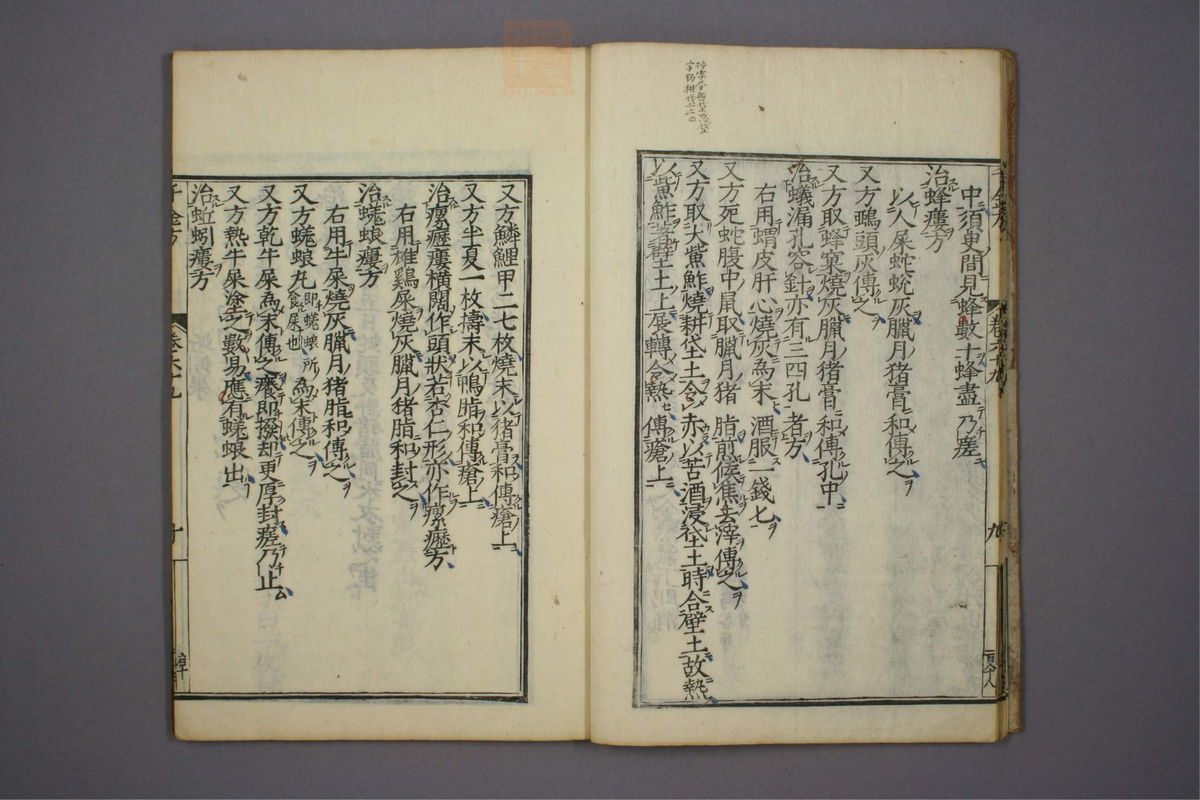 中須臾間見蜂數十蜂盡乃瘥
治蜂瘻方
以人屎蛇蛻灰臘月猪膏和傅之
又方鴟頭灰傅之
又方取蜂窠燒灰臘月猪膏和傅孔中
治蟻漏孔容針亦有三四孔者方
右用蝟皮肝心燒灰為末酒服一錢匕
又方死蛇腹中鼠取臘月猪脂煎侯焦去滓傅之
又方取大鮆鮓燒耕垡土令赤以苦酒浸垡土時合壁土故熱
以鮆鮓著壁土上展轉令熱傅瘡上
又方鱗鯉甲二七枚燒末以猪膏和傅瘡上
又方半夏一枚擣末以鴨脂和傅瘡上
治瘰癧瘻橫闊作頭狀若杏仁形亦作瘰癧方
右用雄鷄屎燒灰臘月猪脂和封之
治蜣蜋瘻方
右用牛屎燒灰臘月猪脂和傅之
又方蜣蜋丸即蜣蜋所食屎也為末傅之
又方乾牛屎為末傅之癢即撥却更厚封瘥乃止
又方熱牛屎塗之數易應有蜣蜋出
治蚯蚓瘻方
千金方
卷六十九
十